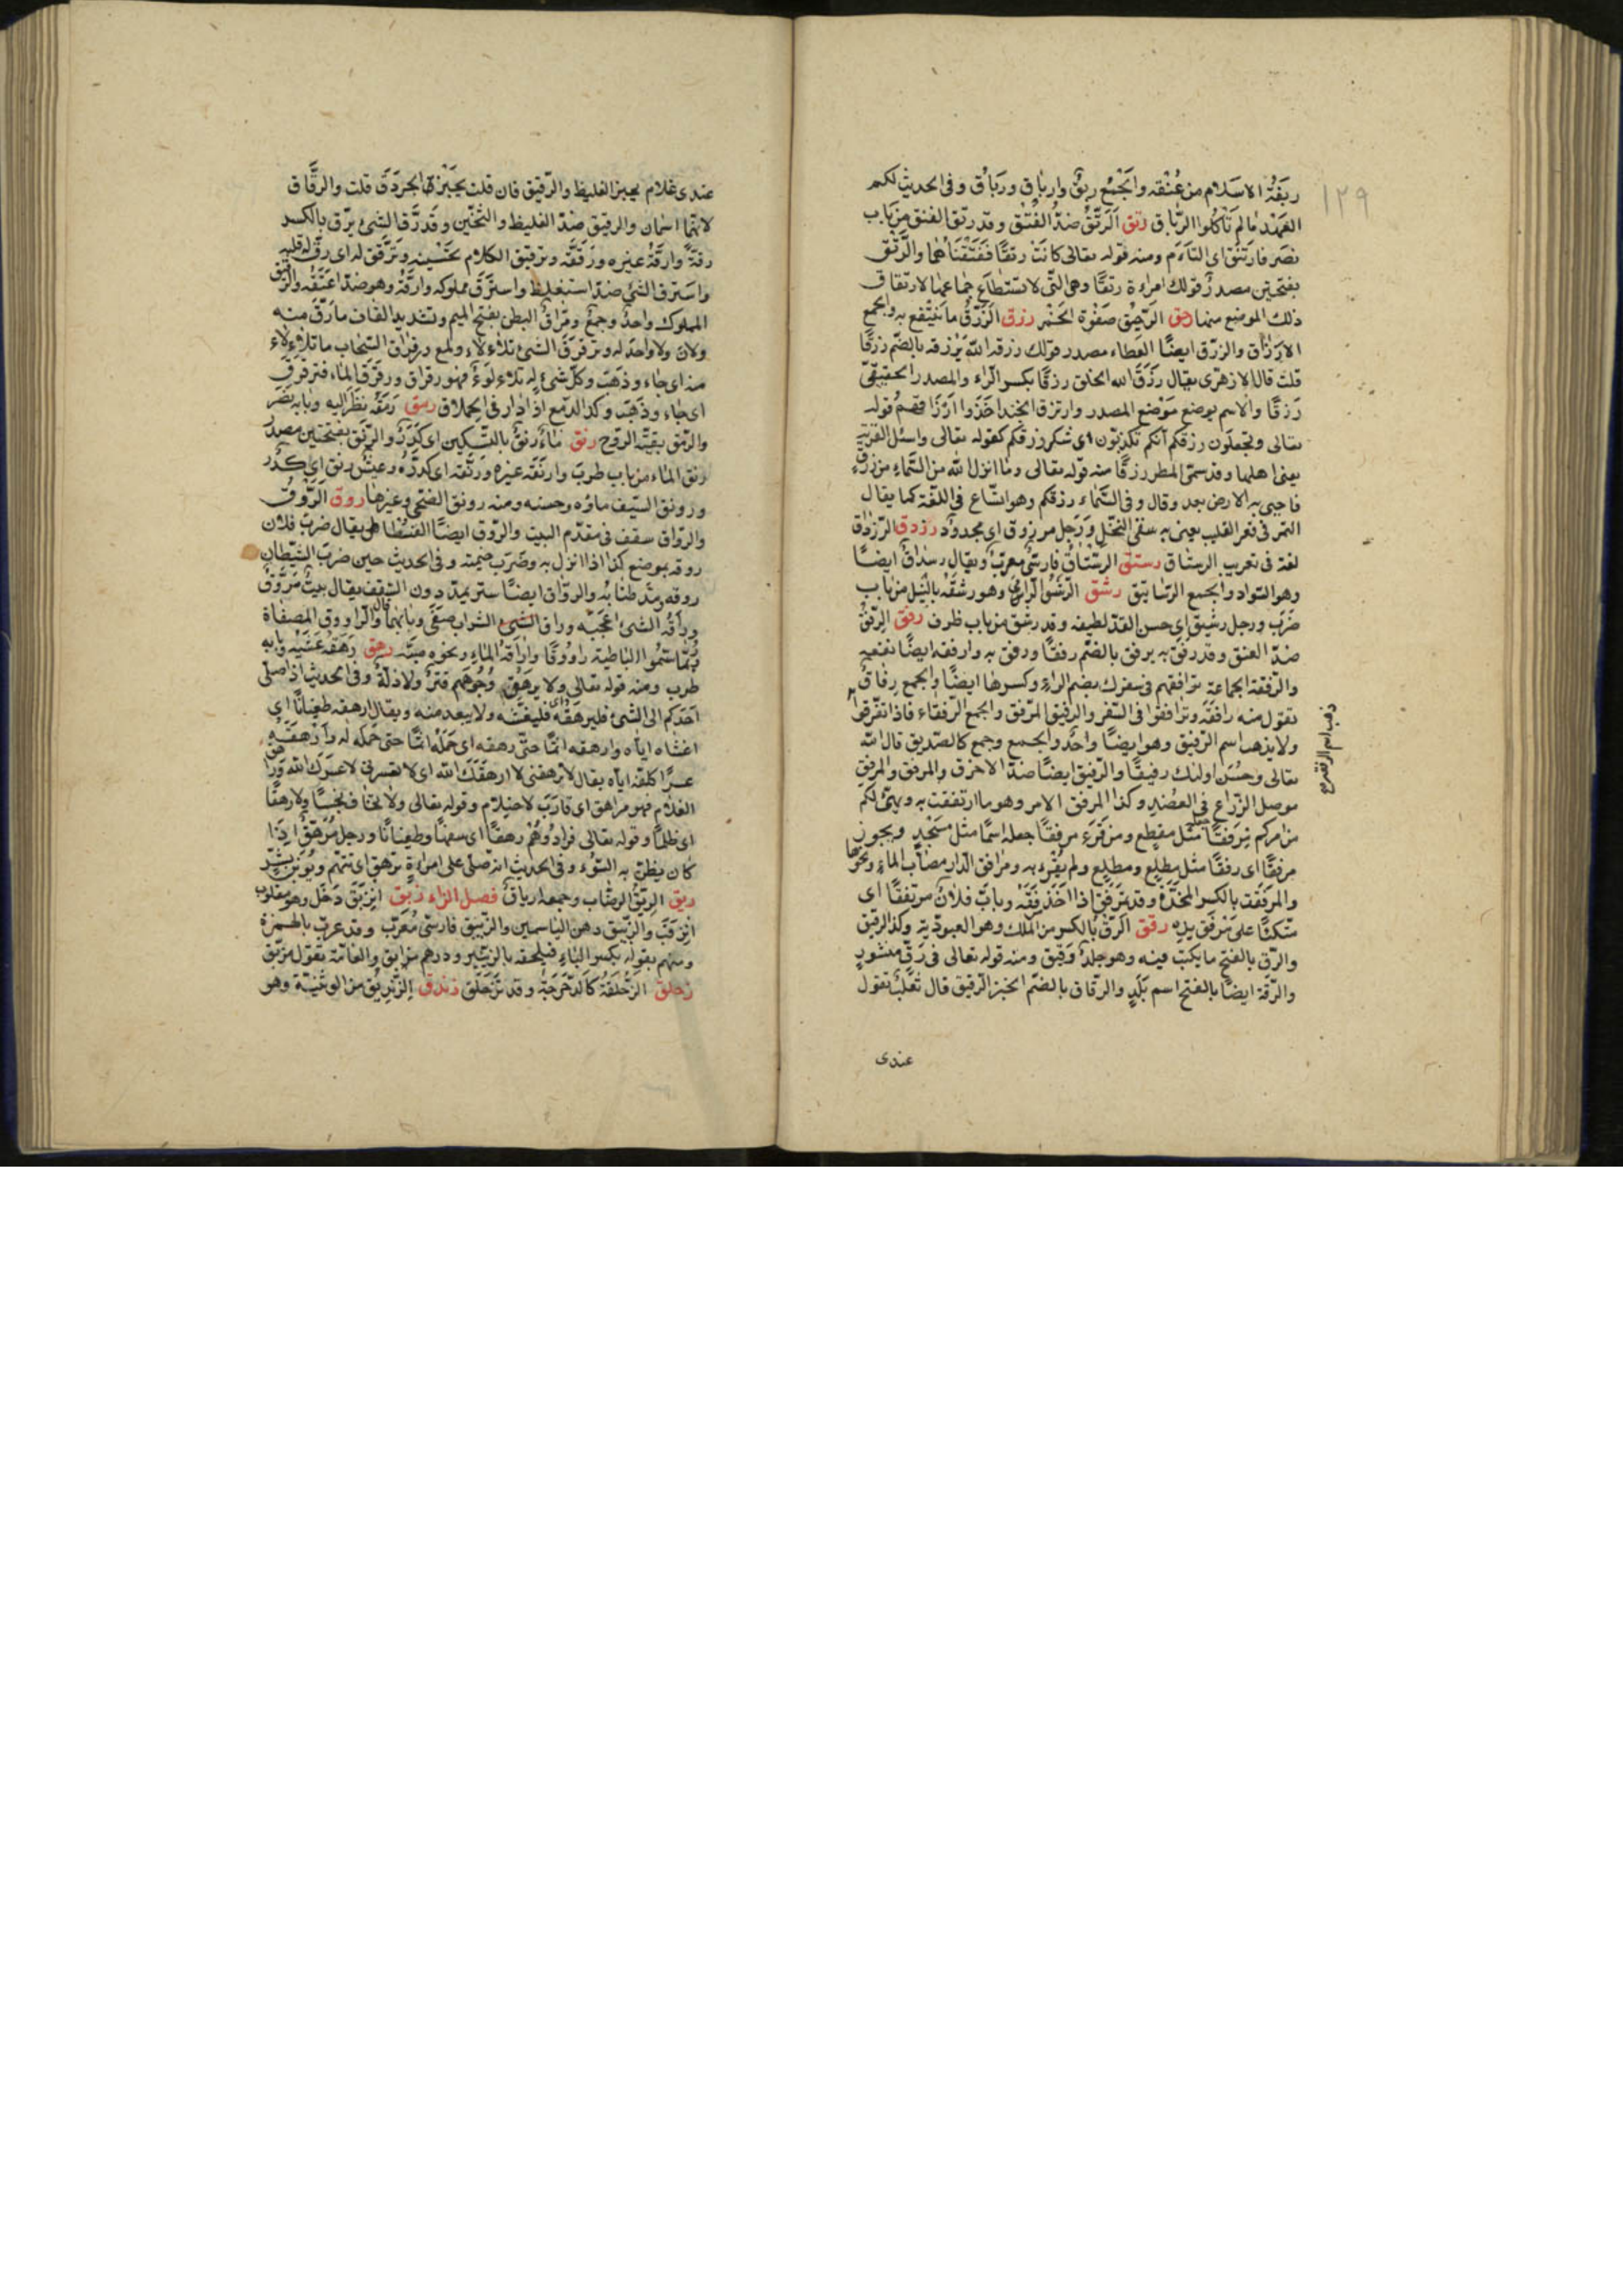 ١٢٩
ربقة الاسلام من عنقه والجمع ربق وارباق ورباق وفى الحديث لكم
العهد ما لم تأكلوا الرباق رتق الرتق ضد الفتق وقد رتق الفتق من باب
نصر فارتتق اى التاءم ومنه قوله تعالى كانتا رتقا ففتقناهما والرتق
بفتحتين مصدر قولك امراءة رتقا وهى التى لا تستطاع جماعها لارتقاق
ذلك الموضع منها رحق الرحيق صفوة الخمر رزق الرزق ما ينتفع به والجمع
الارزاق والرزق ايضا العطاء مصدر قولك رزقه الله يرزقه بالضم رزقا
قلت قال الازهرى يقال رزق الله الخلق رزقا بكسر الراء والمصدر الحقيقى
رزقا والاسم يوضع موضع المصدر وارتزق الجند اخذوا ارزاقهم قوله
تعالى وتجعلون رزقكم انكم تكذبون اى شكر رزقكم كقوله تعالى واسئل القرية
يعنى اهلها وقد سمى المطر رزقا منه قوله تعالى وما انزل الله من السماء من رزق
فاحيى به الارض بعد وقال وفى السماء رزقكم وهو اتساع فى اللغة كما يقال
التمر فى قعر القليب يعنى به سقى النخل ورجل مرزوق اى مجدود رزدق الرزداق
لغة فى تعريب الرستاق رستق الرستاق فارسى معرب ويقال رسداق ايضا
وهو السواد والجمع الرساتيق رشق الرشق الرمى وهو رشقه بالنبل من باب
ضرب ورجل رشيق اى حسن القد لطيفه وقد رشق من باب ظرف رفق الرفق
ضد العنق وقد رفق به يرفق بالضم رفقا ورفق به وارفقه ايضا نفعه
والرفقة الجماعة ترافقهم فى سفرك بضم الراء وكسرها ايضا والجمع رفاق
تقول منه رافقه وترافقوا فى السفر والرفيق المرفق والجمع الرفقاء فاذا تفرقوا
ولا يذهب اسم الرفيق وهو ايضا واحد والجمع وجمع كالصديق قال الله
تعالى وحسن اولئك رفيقا والرفيق ايضا ضد الاخرق والمرفق والمرفق
موصل الذراع فى العضد وكذا المرفق الامر وهو ما ارتفقت به ويهيئ لكم
من امركم مرفقا مثل مقطع ومن قرء مرفقا جعله اسما مثل مسجد ويجوز
مرفقا اى رفقا مثل مطلع ومطلع ولم يقرء به ومرافق الدار مصاب الماء ونحوها
والمرفقة بالكسر المخدة وقد تمرفق اذا اخذ مرفقة وبات فلان مرتفقا اى
متكئا على مرفق يده رقق الرق بالكسر من الملك وهو العبودية وكذا الرقيق
والرق بالفتح ما يكتب فيه وهو جلد رقيق ومنه قوله تعالى فى رق منشور
والرقة ايضا بالفتح اسم بلد والرقاق بالضم الخبز الرقيق قال ثعلب تقول
عندى
عندى غلام يخبز الغليظ والرقيق فان قلت يخبز الجردق قلت والرقاق
لانهما اسمان والرقيق ضد الغليظ والثخين وقد رق الشئ يرق بالكسر
رقة وارقة غيره ورققه وترقيق الكلام تحسينه وترقق له اى رق له قلبه
واسترق الشئ ضد استغلظ واسترق مملوكه وارقة وهو ضد اعتقه والرقيق
المملوك واحد وجمع ومراق البطن بفتح الميم وتشديد القاف ما رق منه
ولان ولا واحد له وترقرق الشئ تلاءلاء ولمع ورقراق السحاب ما تلاءلاء
منه اى جاء وذهب وكل شئ له تلاءلوء فهو رقراق ورقرق الماء فترقرق
اى جاء وذهب وكذا الدمع اذا دار فى الحملاق رمق رمقه نظر اليه وبابه نصر
والرمق بقية الروح رنق ماء رنق بالتسكين اى كدر والرنق بفتحتين مصدر
رنق الماء من باب طرب وارنقه غيره ورنقه اى كدره وعيش رنق اى كدر
ورونق السيف ماؤه وحسنه ومنه رونق الضحى وغيرها روق الروق
والرواق سقف فى مقدم البيت والروق ايضا الفسطاط يقال ضرب فلان
روقه بموضع كذا اذا انزل به وضرب خيمته وفى الحديث حين ضرب الشيطان
روقه ومد طنابه والرواق ايضا ستر يمد دون السقف يقال بيت مروق
وراقه الشئ اعجبه وراق الشئ الشراب صفى وبابهما قال والراووق المصفاة
ربما سموا الباطية راووقا واراقة الماء ونحوه صبه رهق رهقه غشيه وبابه
طرب ومنه قوله تعالى ولا يرهق وجوههم قتر ولا ذلة وفى الحديث اذا صلى
احدكم الى الشئ فليرهقه اى فليغشه ولا يبعد منه ويقال ارهقه طغيانا اى
اغشاه اياه وارهقه اثما حتى رهقه اى حمله اثما حتى حمله له وارهقه
عسرا كلفه اياه يقال لا ترهقنى لا ارهقك الله اى لا تعسرنى لا عسرك الله وراهق
الغلام فهو مراهق اى قارب لاحتلام وقوله تعالى ولا يخاف بخسا ولا رهقا
اى ظلما وقوله تعالى فزادوهم رهقا اى سفها وطغيانا ورجل مرهق اذا
كان يظن به السوء وفى الحديث انه صلى على امراءة ترهق اى تتهم ويؤبن بشر
ريق الريق الرضاب وجمعه ارياق فصل الزاء زبق انزبق دخل وهو مقلوب
انزقب والزنبق دهن الياسمين والزيبق فارسى معرب وقد عرب بالهمزة
ومنهم بقوله بكسر الباء فيلحقه بالزئبر ودرهم مزابق والعامة تقول مزبق
زحلق الزحلقة كالدحرجة وقد تزحلق زندق الزنديق من الوثنية وهو